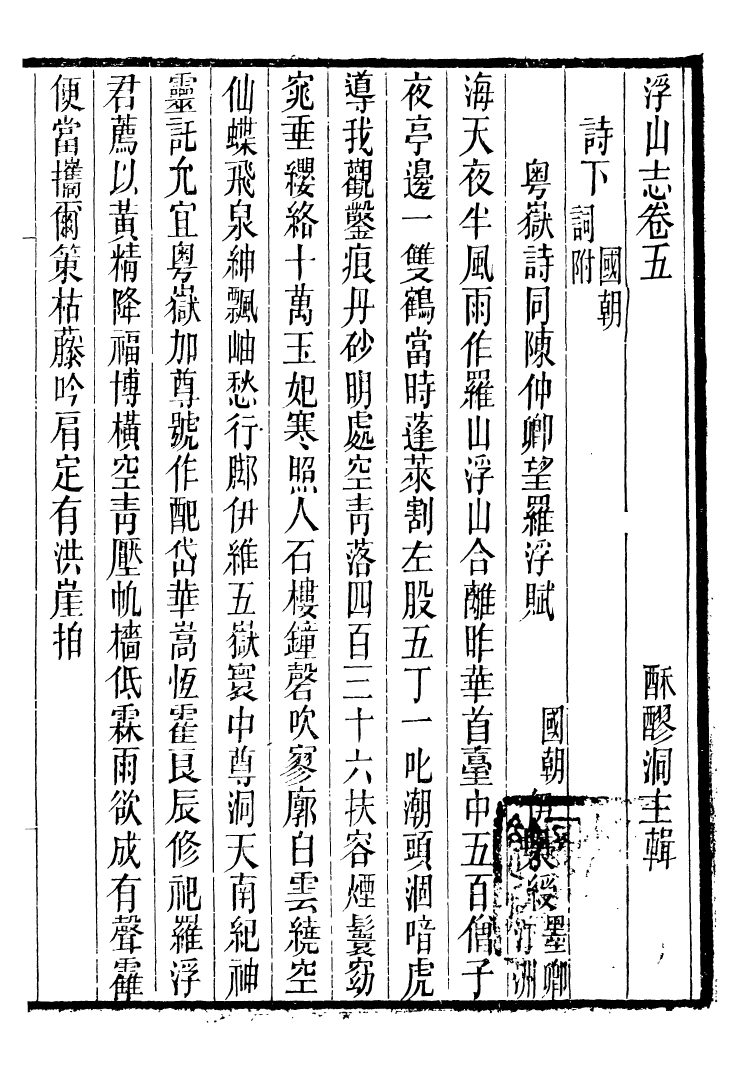 浮山志卷五
酥醪洞主輯
詩下 國朝詞附
粵嶽詩同陳仲卿望羅浮賦
國朝 伊秉綬 墨卿 汀洲
海天夜半風雨作羅山浮山合離昨華首臺中五百僧子
夜亭邊一雙鶴當時蓬萊割左股五丁一叱潮頭涸喑虎
導我觀鑿痕丹砂明處空青落四百三十六扶容煙鬟窈
窕垂纓絡十萬玉妃寒照人石樓鐘磬吹寥廓白雲繞空
仙蝶飛泉紳飄岫愁行腳伊維五嶽寰中尊洞天南紀神
靈託允宜粵嶽加尊號作配岱華嵩恆霍良辰修祀羅浮
君薦以黃精降福博橫空青壓帆檣低霖雨欲成有聲靃
便當攜爾策枯藤吟肩定有洪崖拍